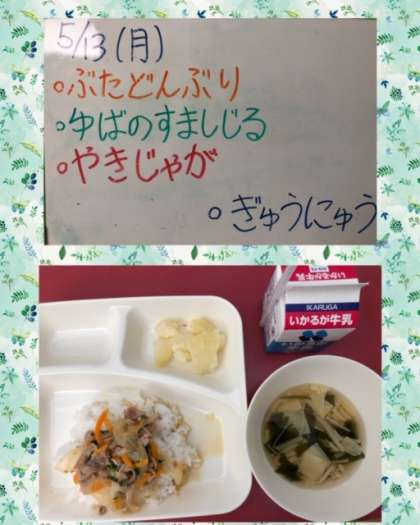 5/13(月)
○ぶたどんぶり
○ゆばのすましじる
○やきじゃが
○ぎゅうにゅう
いかるが牛乳
IKARUGA
いかるが牛乳